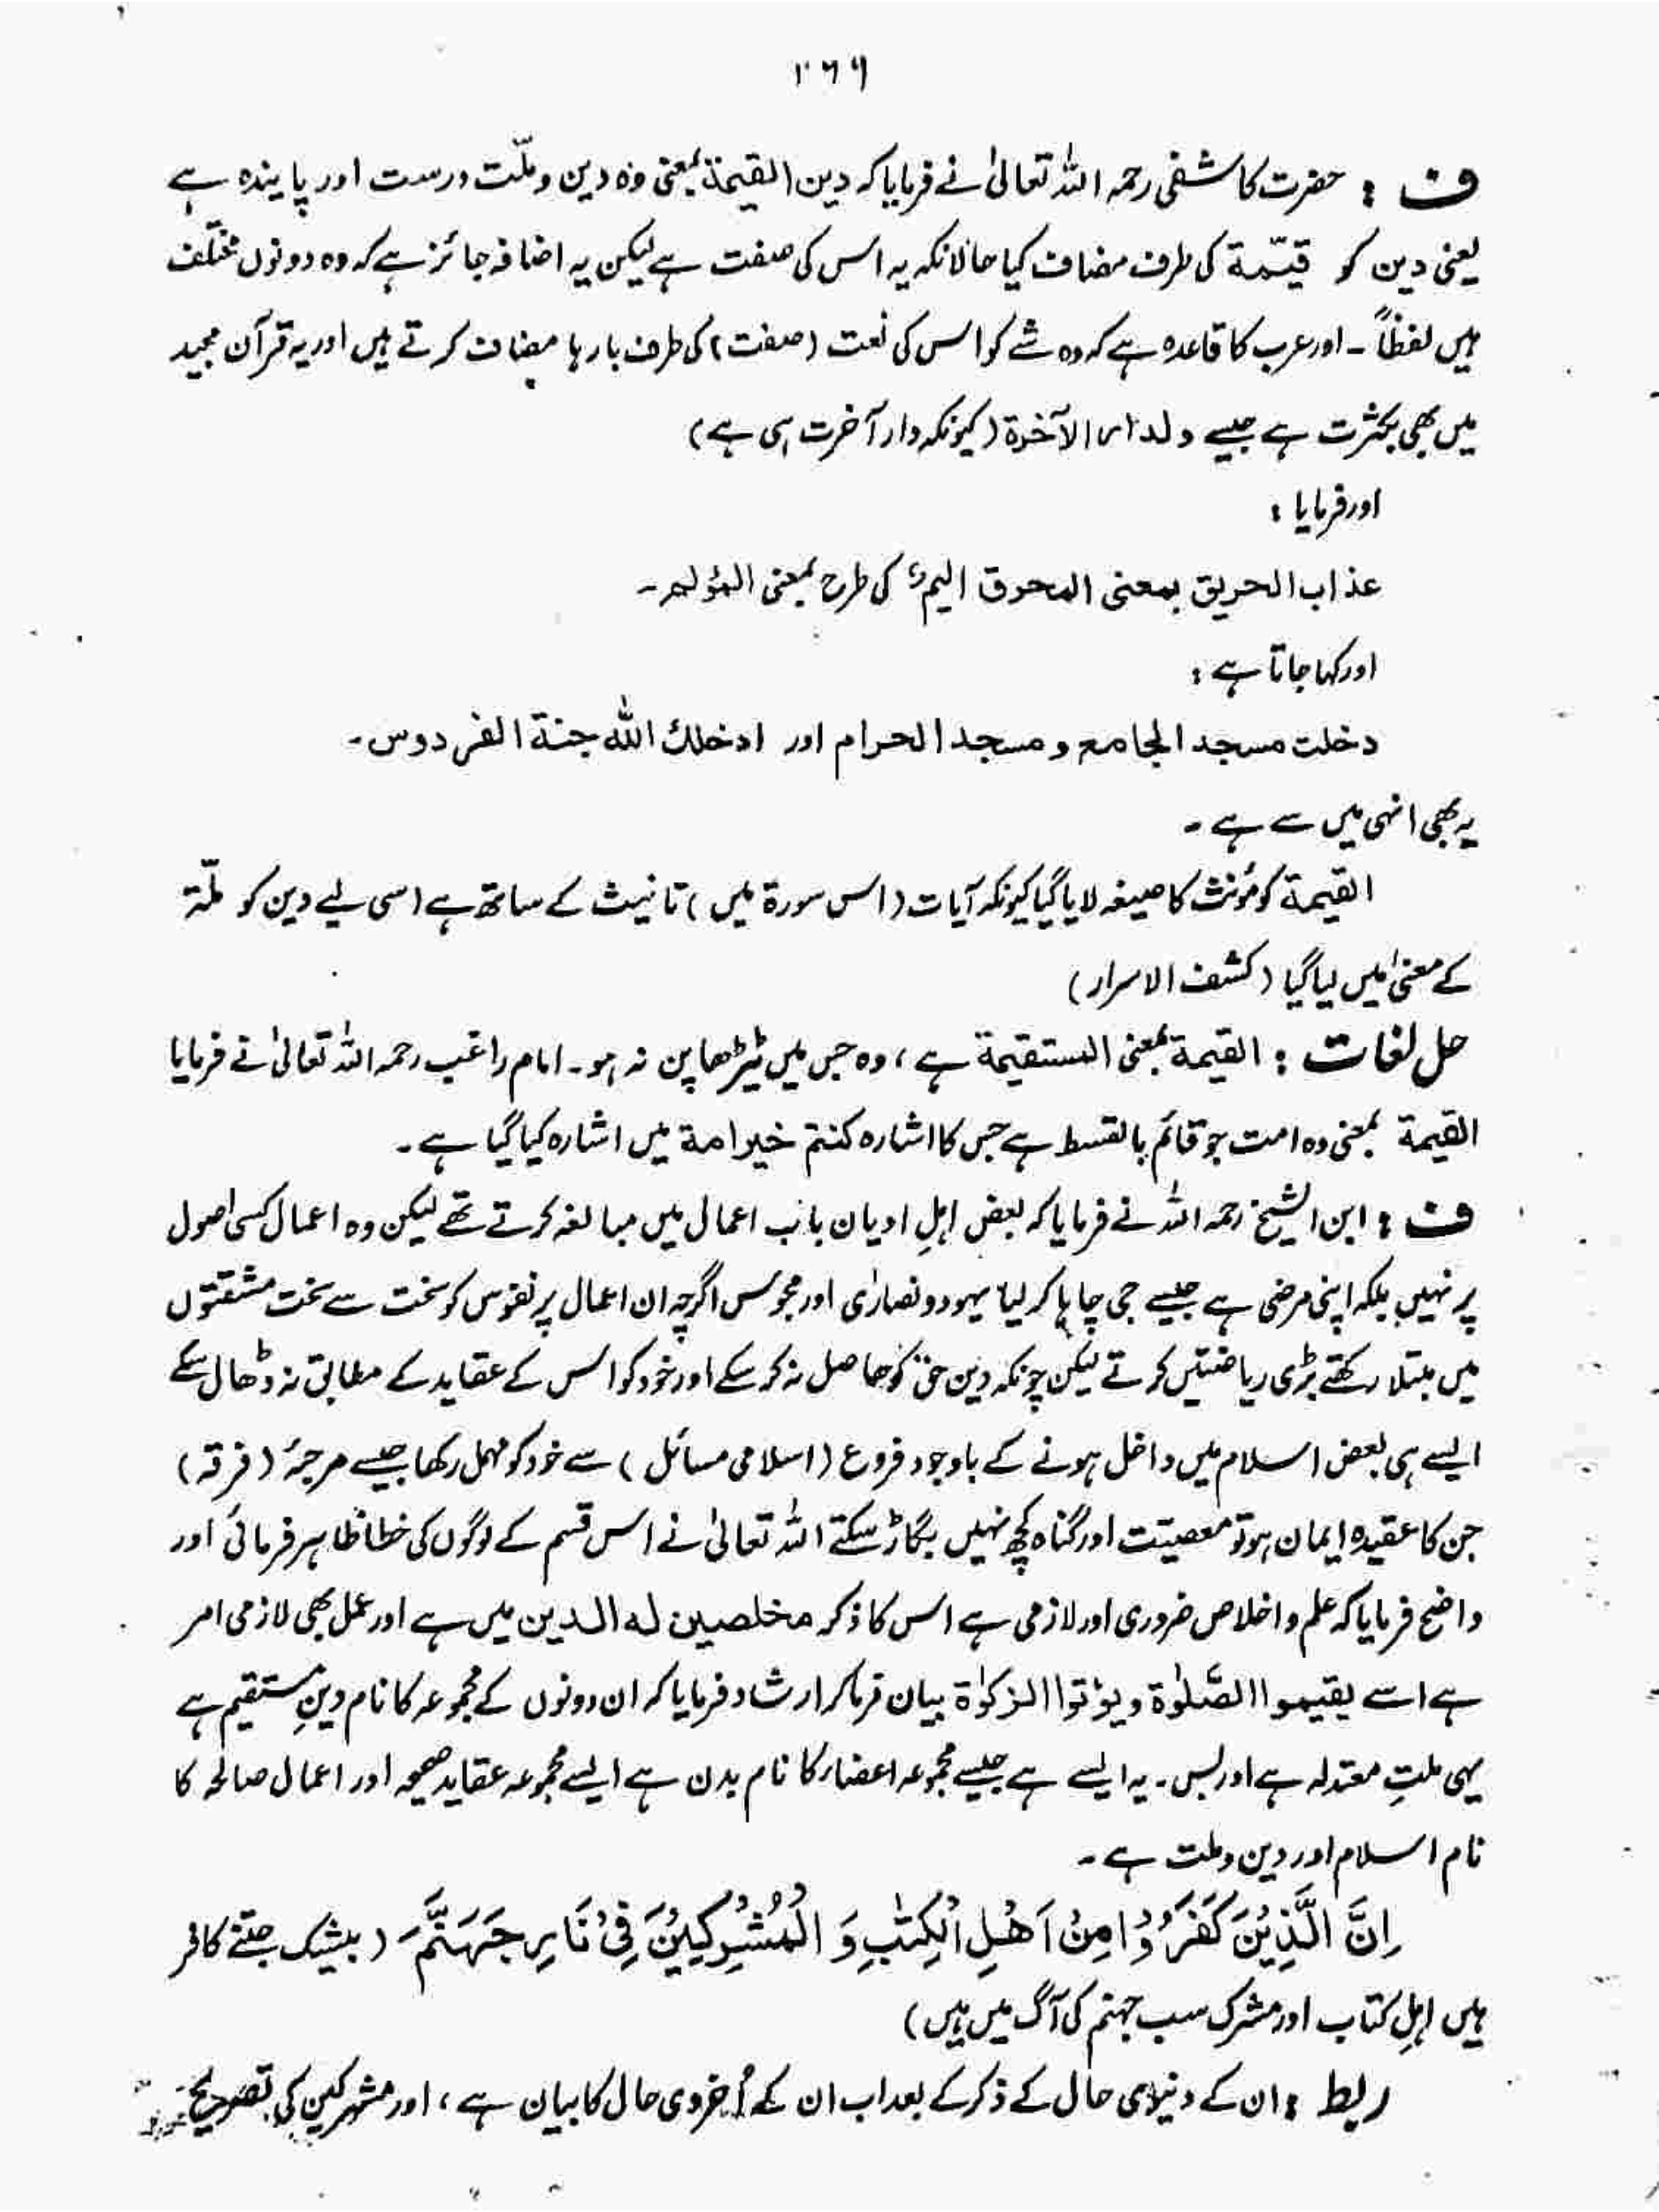 ۲۶۹
ف : حضرت کاشفی رحمہ اللہ تعالیٰ نے فرمایا کہ دین القیمۃ بمعنی وہ دین و ملّت درست اور پایندہ ہے
یعنی دین کو قیّمۃ کی طرف مضاف کیا حالانکہ یہ اس کی صفت ہے لیکن یہ اضافہ جائز ہے کہ وہ دونوں مختلف
ہیں لفظاً ۔ اور عرب کا قاعدہ ہے کہ وہ شے کو اس کی نعت (صفت) کی طرف بارہا مضاف کرتے ہیں اور یہ قرآن مجید
میں بھی بکثرت ہے جیسے ولدار الآخرۃ (کیونکہ دار آخرت ہی ہے)
اور فرمایا :
عذاب الحریق بمعنی المحرق الیم کی طرح بمعنی المؤلم ۔
اور کہا جاتا ہے :
دخلت مسجد الجامع و مسجد الحرام اور ادخلك اللہ جنۃ الفردوس ۔
یہ بھی انہی میں سے ہے ۔
القیمۃ کو مؤنث کا صیغہ لایا گیا کیونکہ آیات (اس سورۃ میں) تانیث کے ساتھ ہے اسی لیے دین کو ملّۃ
کے معنیٰ میں لیا گیا (کشف الاسرار)
حل لغات : القیمۃ بمعنی المستقیمۃ ہے ، وہ جس میں ٹیڑھاپن نہ ہو ۔ امام راغب رحمہ اللہ تعالیٰ نے فرمایا
القیمۃ بمعنی وہ امت جو قائم بالقسط ہے جس کا اشارہ کنتم خیر امۃ میں اشارہ کیا گیا ہے ۔
ف : ابن الشیخ رحمہ اللہ نے فرمایا کہ بعض اہلِ ادیان باب اعمال میں مبالغہ کرتے تھے لیکن وہ اعمال کسی اصول
پر نہیں بلکہ اپنی مرضی ہے جیسے جی چاہا کر لیا یہود و نصارٰی اور مجوس اگرچہ ان اعمال پر نفوس کو سخت سے سخت مشقتوں
میں مبتلا رکھتے بڑی ریاضتیں کرتے لیکن چونکہ دین حق کو حاصل نہ کر سکے اور خود کو اس کے عقاید کے مطابق نہ ڈھال سکے
ایسے ہی بعض اسلام میں داخل ہونے کے باوجود فروع (اسلامی مسائل) سے خود کو مہمل رکھا جیسے مرجۂ (فرقہ)
جن کا عقیدہ ایمان ہو تو معصیت اور گناہ کچھ نہیں بگاڑ سکتے اللہ تعالیٰ نے اس قسم کے لوگوں کی خطا ظاہر فرمائی اور
واضح فرمایا کہ علم و اخلاص ضروری اور لازمی ہے اس کا ذکر مخلصین لہ الدین میں ہے اور عمل بھی لازمی امر
ہے اسے یقیموا الصّلوٰۃ و یؤتوا الزکوٰۃ بیان فرما کر ارشاد فرمایا کہ ان دونوں کے مجموعہ کا نام دینِ مستقیم ہے
یہی ملتِ معتدلہ ہے اور بس ۔ یہ ایسے ہے جیسے مجموعہ اعضاء کا نام بدن ہے ایسے مجموعہ عقاید صحیحہ اور اعمال صالحہ کا
نام اسلام اور دین و ملت ہے ۔
اِنَّ الَّذِیْنَ کَفَرُوْا مِنْ اَھْلِ الْکِتٰبِ وَ الْمُشْرِکِیْنَ فِیْ نَارِ جَهَنَّمَ (بیشک جتنے کافر
ہیں اہلِ کتاب اور مشرک سب جہنم کی آگ میں ہیں)
ربط : ان کے دنیوی حال کے ذکر کے بعد اب ان کے اُخروی حال کا بیان ہے ، اور مشرکین کی تصریح